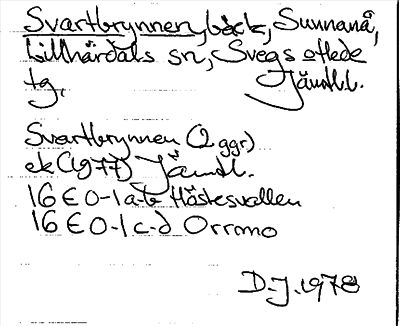 Svartbrynnen, bäck, Sunnanå,
Lillhärdals sn, Svegs
tg. Jämtl.
Svartbrynnen (2 ggr)
ek (1977) Jämtl.
16 E 0-1 a-b Hästesvallen
16 E 0-1 c-d Orrmo
D.J. 1978